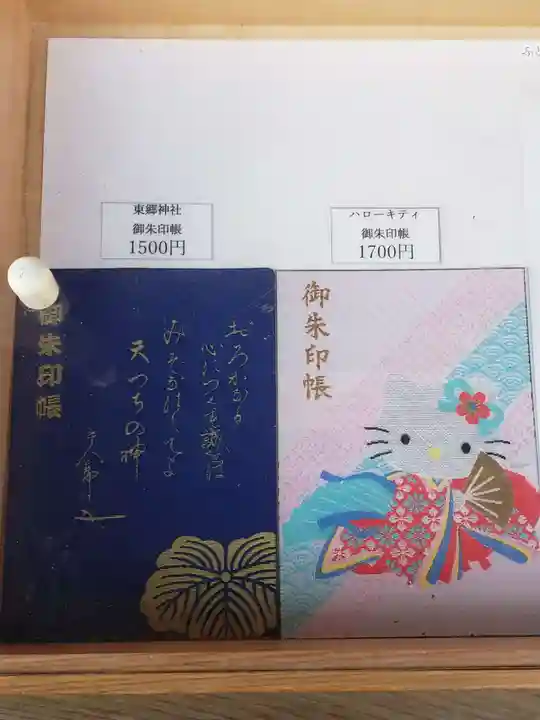 東郷神社
御朱印帳
1500円
ハローキティ
御朱印帳
1700円
御朱印帳
おろかなる
心につくす誠をば
みそなはしてよ
天つちの神
御朱印帳